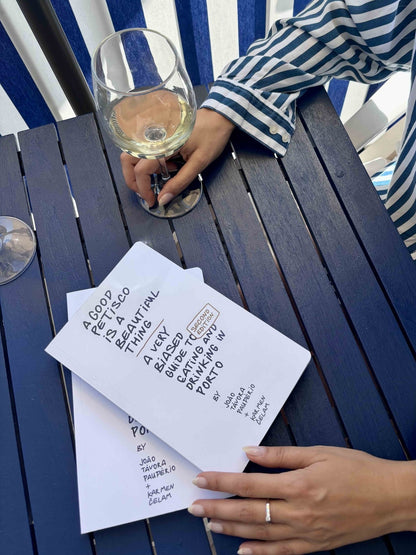 A GOOD
PETISCO
IS A
BEAUTIFUL
THING
A VERY
BIASED
GUIDE TO
EATING AND
DRINKING IN
PORTO
SECOND
EDITION
BY
JOÃO
TÁVORA
PAUPÉRIO
+
KARMEN
ČELAM
PORT
BY
JOÃO
TÁVORA
PAUPÉRIO
+
KARMEN
ČELAM